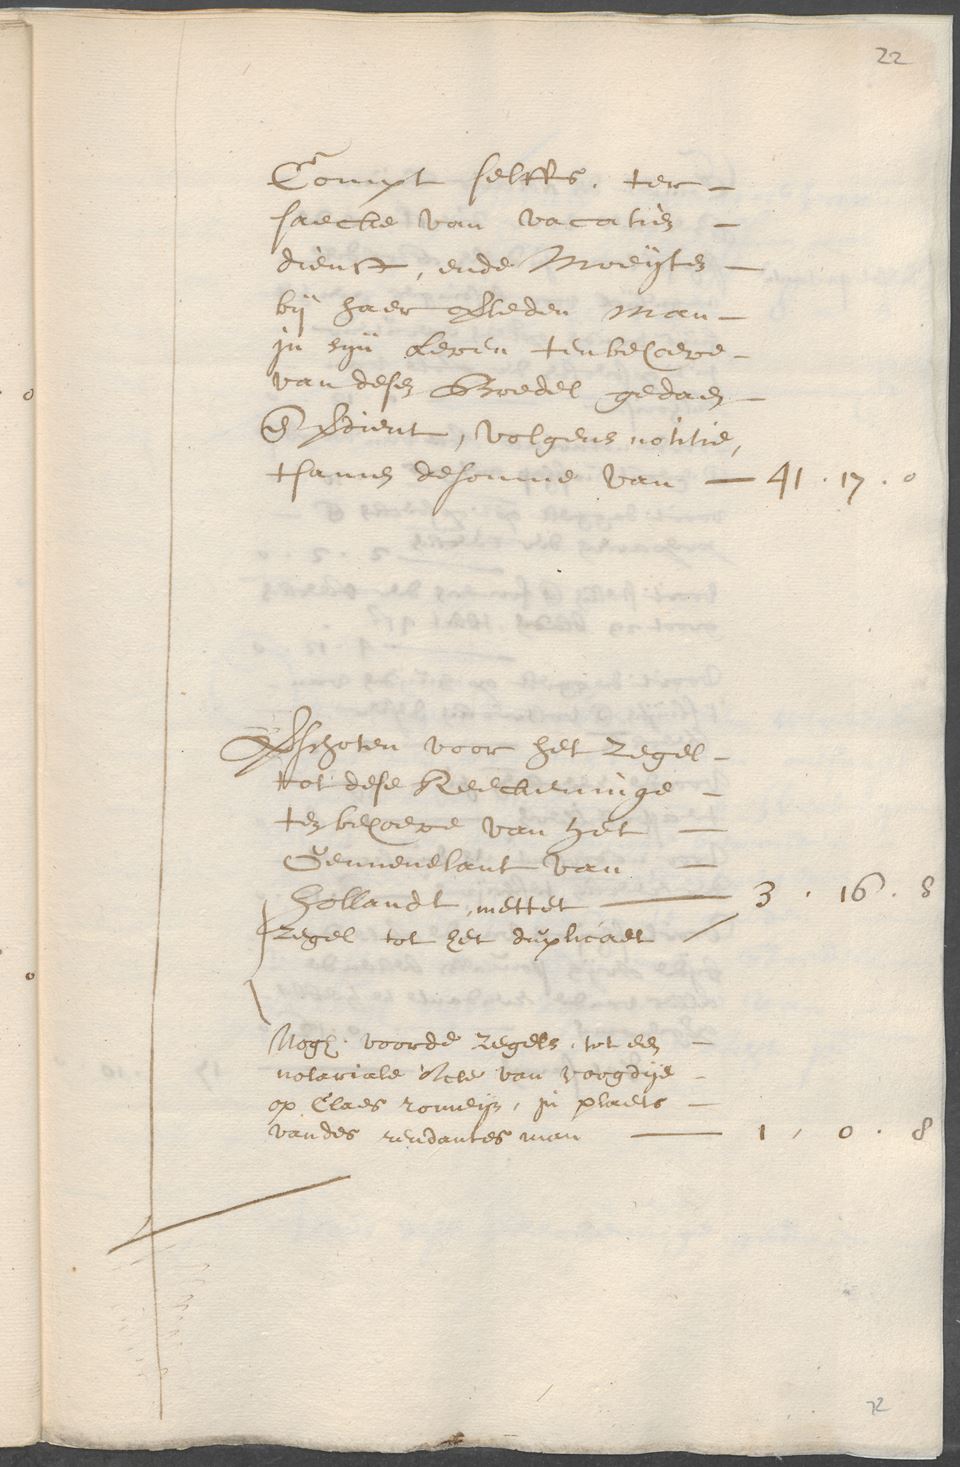 22
Compt selffs, ter
saecke van vacatien
dienst, ende Moeyten
bij haer Overleden man
in sijn Leven ten behoeve
van desen Boedel gedaen
en Verdient, volgens notitie,
tsamen de somme van — 41 . 17 . 0
Verschoten voor het zegel
tot dese Reeckeninge
ten behoeve van het
Gemenelant van
Hollandt, mettet — 3 . 16 . 8
zegel tot het duplicaet
Nogh voor de zegels, tot een
notariale Acte van voogdije
op Claes romeijn, in plaets
van des rendantes man — 1 , 0 . 8
72